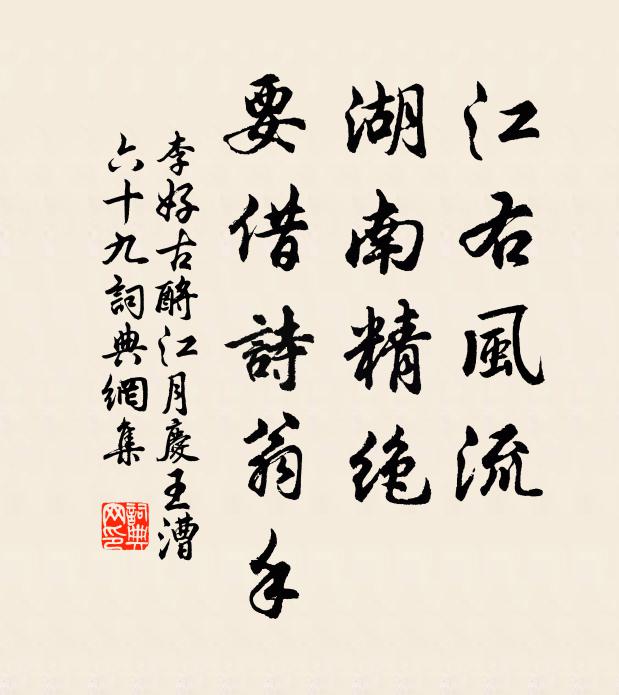 江右風流
湖南精绝
要借詩翁手
李好古酹江月慶王漕
六十九詞典網集
詞典
网印